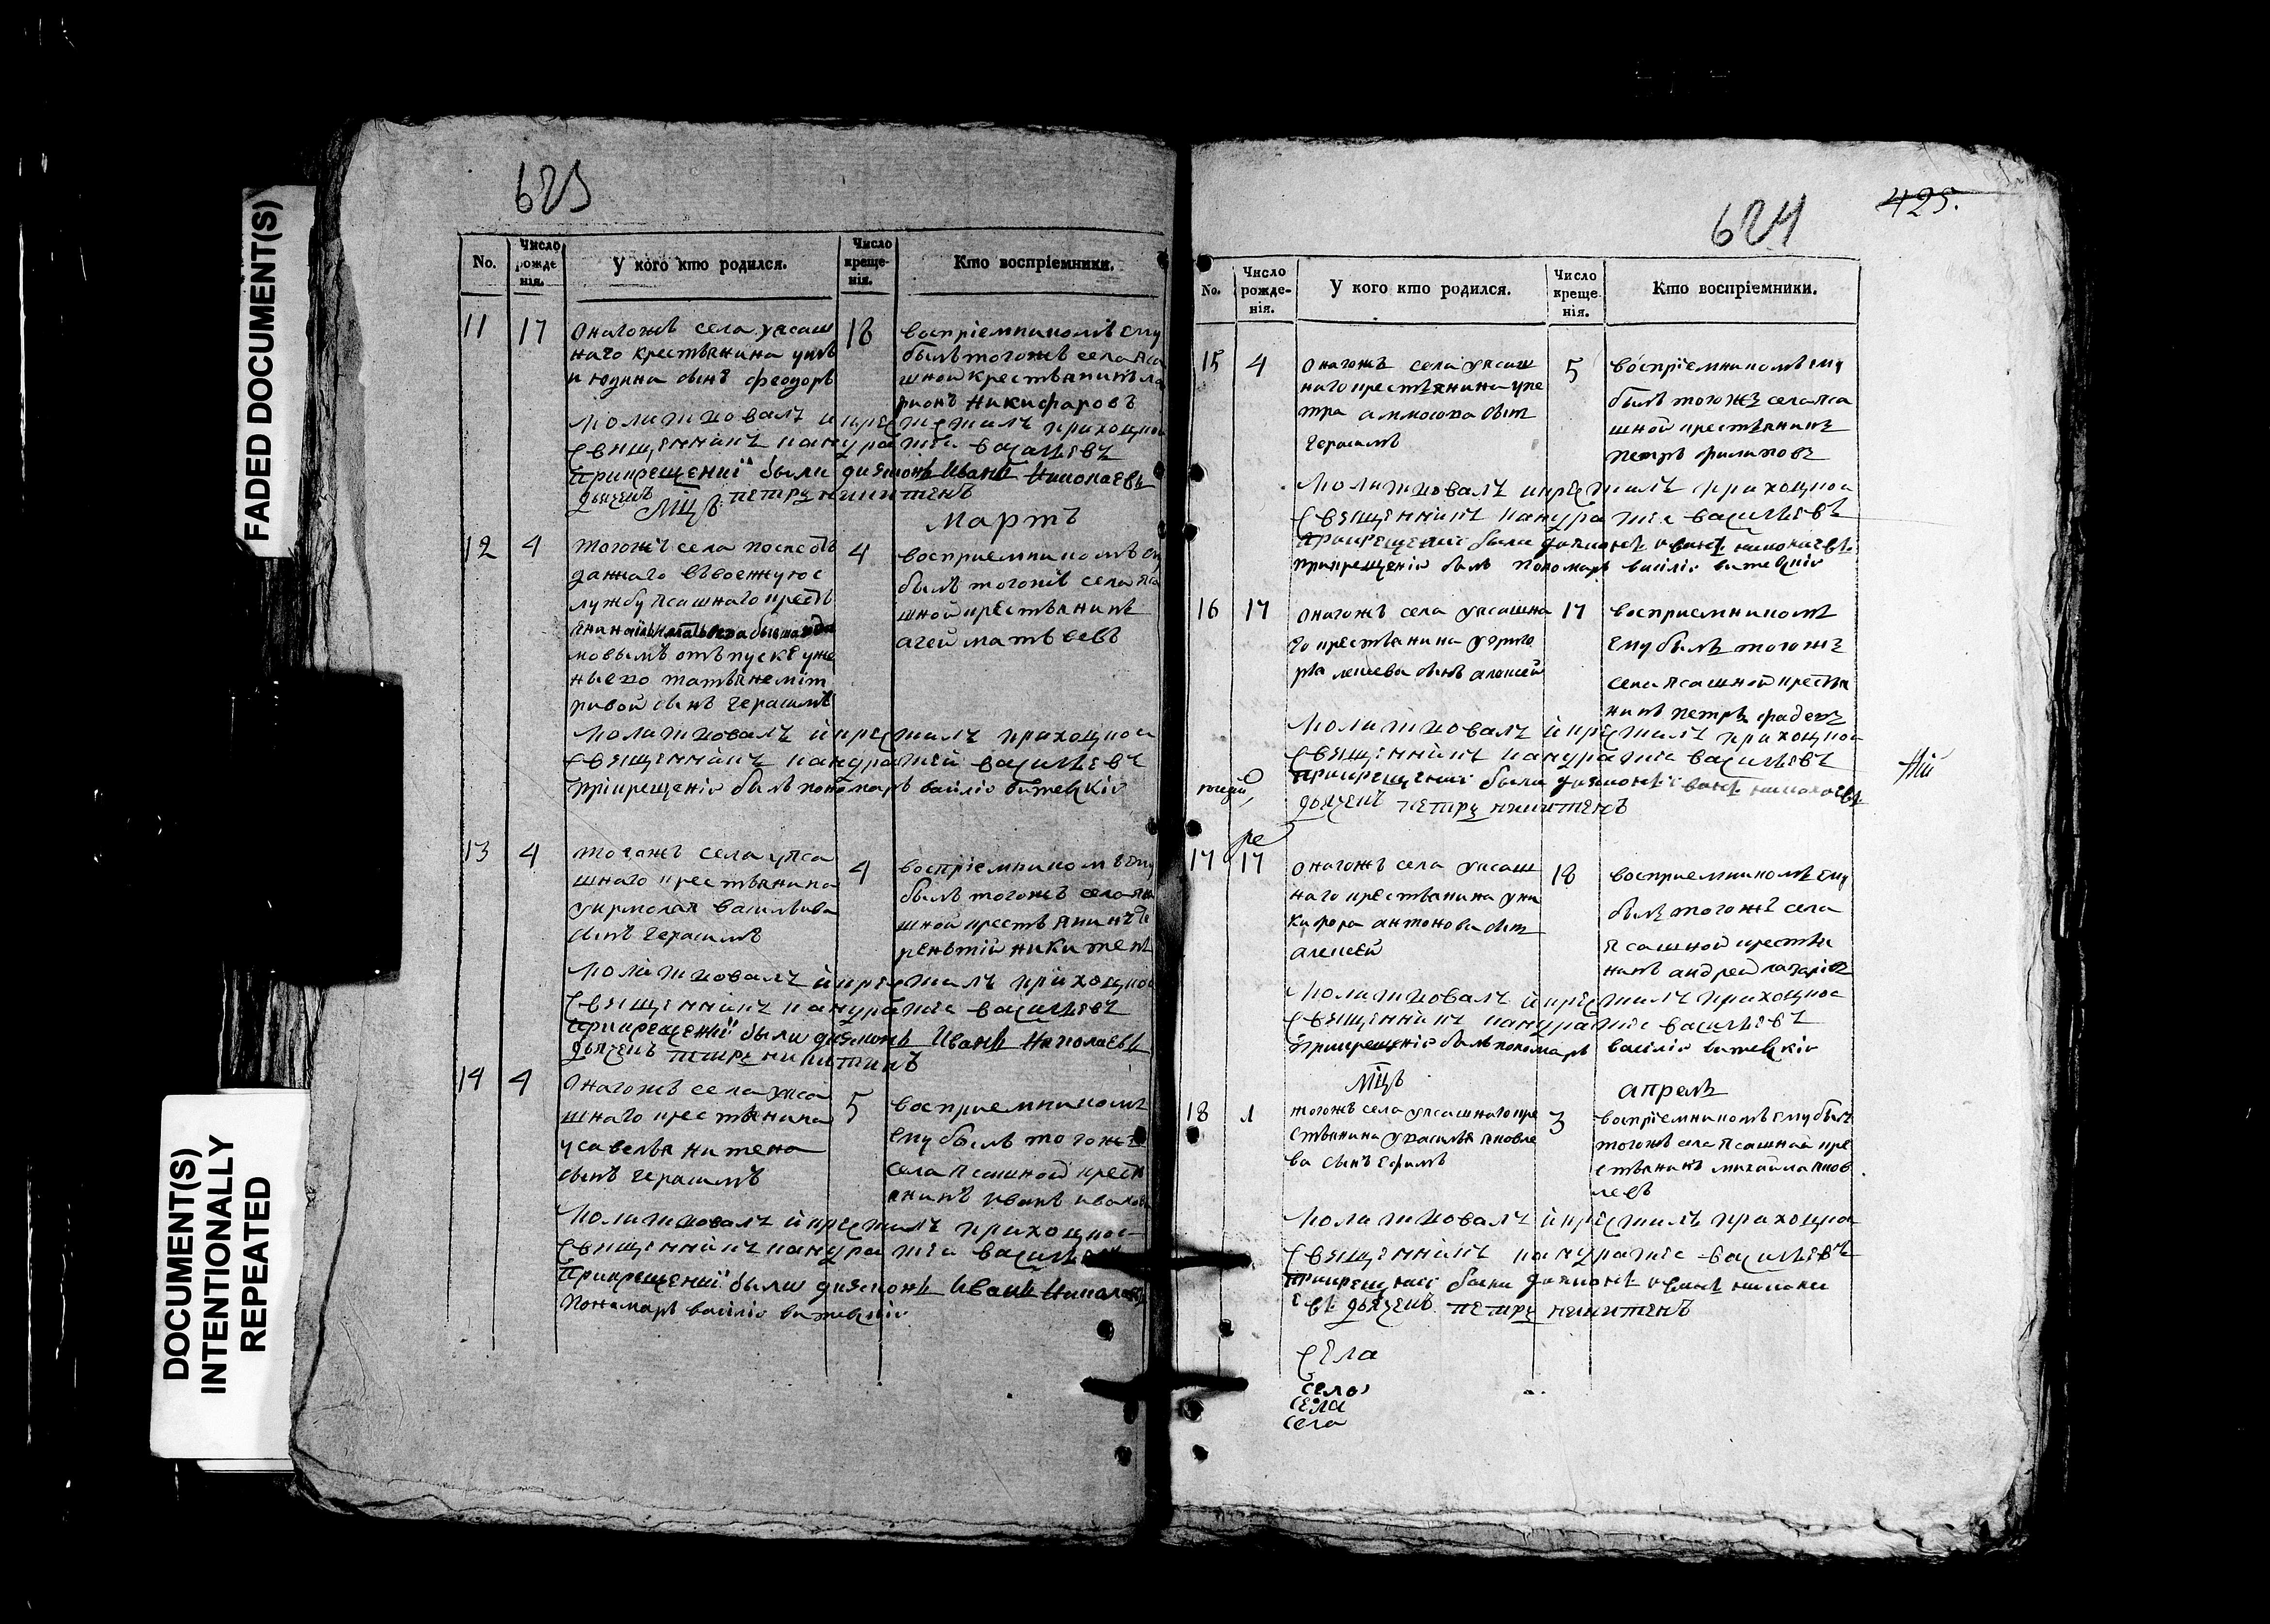 FADED DOCUMENT(S)
DOCUMENT(S)
INTENTIONALLY
REPEATED
623
No.
Число
рожде
нія.
У кого кто родился.
Число
креще-
нія.
Кто воспріемники.
11
17
Онагожъ села уясаш
наго крестьянина
июдина сынъ феодоръ
18
воспріемникомъ ему
былъ тогожъ села яса
шной крестьянинъ ла
рионъ Никифоровъ
Молитвовалъ и крестилъ приходской
священникъ васильевъ
Прикрещении были диаконъ Иванъ Николаевъ
дьячекъ петръ никитенъ
Мцъ
Мартъ
12
4
тогожъ села
даннаго въвоенную с
лужбу ясашнаго кресть
мовымъ отъпуске уже
ны его татьяне
сынъ герасимъ
4
восприемникомъ ему
былъ тогожъ села яса
шной крестьянинъ
агей матвеевъ
Молитвовалъ и крестилъ приходской
священникъ васильевъ
Прикрещеніи былъ пономарь василіи витевскіи
13
4
тогожъ села уяса
шнаго крестьянина
уярмолая васильива
сынъ герасимъ
4
воспріемникомъ ему
былъ тогожъ села яса
шной крестьянинъ те
рентій никитенъ
Молитвовалъ и крестилъ приходской
священникъ васильевъ
Прикрещении были диаконъ Иванъ Николаевъ
дьячекъ петръ никитинъ
14
4
Онагожъ села уяса
шнаго крестьянина
усавелья никтена
сынъ герасимъ
5
восприемникомъ
ему былъ тогожъ
села ясашной кресть
янинъ иванъ
Молитвовалъ и крестилъ приходской
священникъ
Прикрещении были диаконъ Иванъ
Пономарь василіи витевскіи
624
425.
No.
Число
рожде-
нія.
У кого кто родился.
Число
креще
нія.
Кто воспріемники.
15
4
Онагожъ села уясаш
наго крестьянина упе
тра аммосова сынъ
герасимъ
5
воспріемникомъ ему
былъ тогожъ села яса
шной крестьянинъ
петръ филиповъ
Молитвовалъ и крестилъ приходской
священникъ васильевъ
Прикрещении были диаконъ иванъ николаевъ
прикрещеніи былъ пономарь василіи витевскіи
16
17
Онагожъ села уясашна
го крестьянина угриго
рья сынъ алексей
17
восприемникомъ
ему былъ тогожъ
села ясашной крестья
нинъ петръ фадевъ
Молитвовалъ и крестилъ приходской
священникъ васильевъ
Прикрещении были диаконъ иванъ николаевъ
дьячекъ петръ никитенъ
17
17
Онагожъ села уясаш
наго крестьянина уни
кифора антонова сынъ
алексей
18
восприемникомъ ему
былъ тогожъ села
ясашной крестья
нинъ андрей
Молитвовалъ и крестилъ приходской
священникъ васильевъ
Прикрещеніи былъ пономарь василіи витевскіи
Мцъ
апрель
18
1
тогожъ села уясашнаго кре
стьянина увасилья яковле
ва сынъ ефимъ
3
воспріемникомъ ему былъ
тогожъ села ясашной кре
стьянинъ михайла яков
левъ
Молитвовалъ и крестилъ приходской
священникъ васильевъ
Прикрещении были диаконъ иванъ никола
евъ дьячекъ петръ никитенъ
села
село
села
села